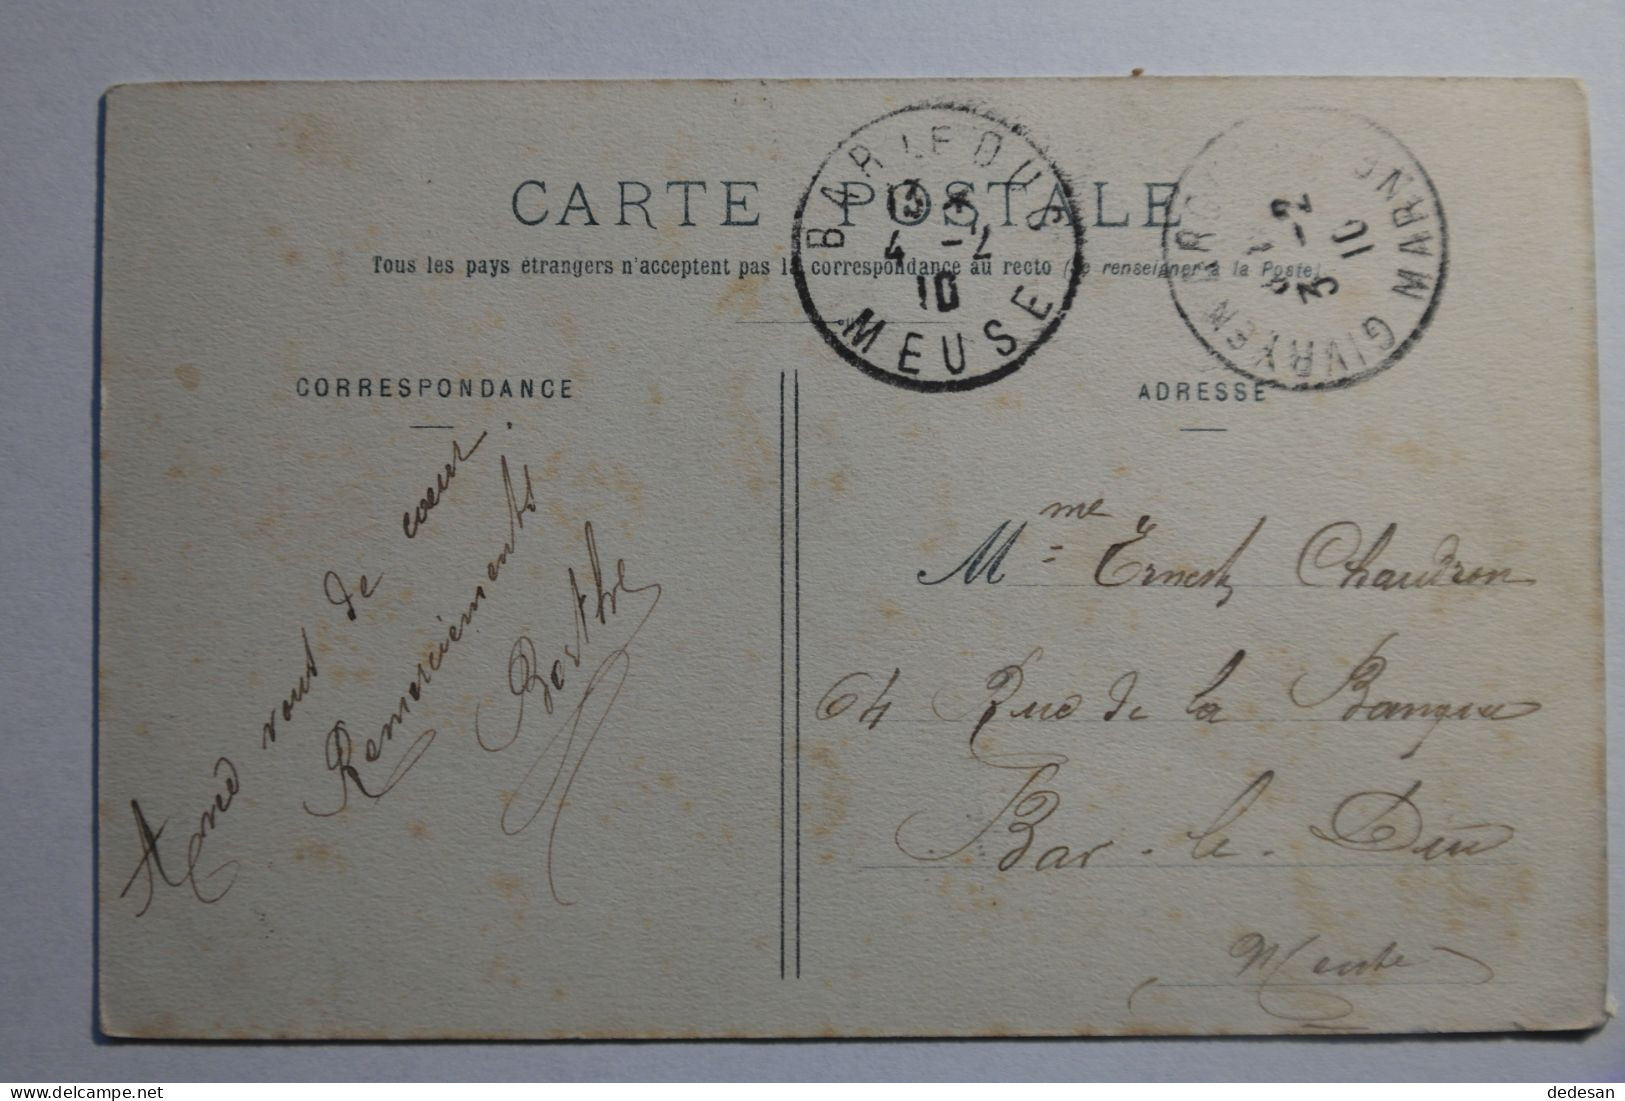 CARTE POSTALE
Tous les pays étrangers n'acceptent pas la correspondance au recto (Se renseigner à la Poste)
BAR LE DUC
13
4 -2
10
MEUSE
GIVRY EN ARGONNE MARNE
3 -2
10
CORRESPONDANCE
ADRESSE
vous de cœur.
Remerciements
Berthe
Mme Ernest Chaudron
64 Rue de la Banque
Bar-le-Duc
Meuse
dedesan